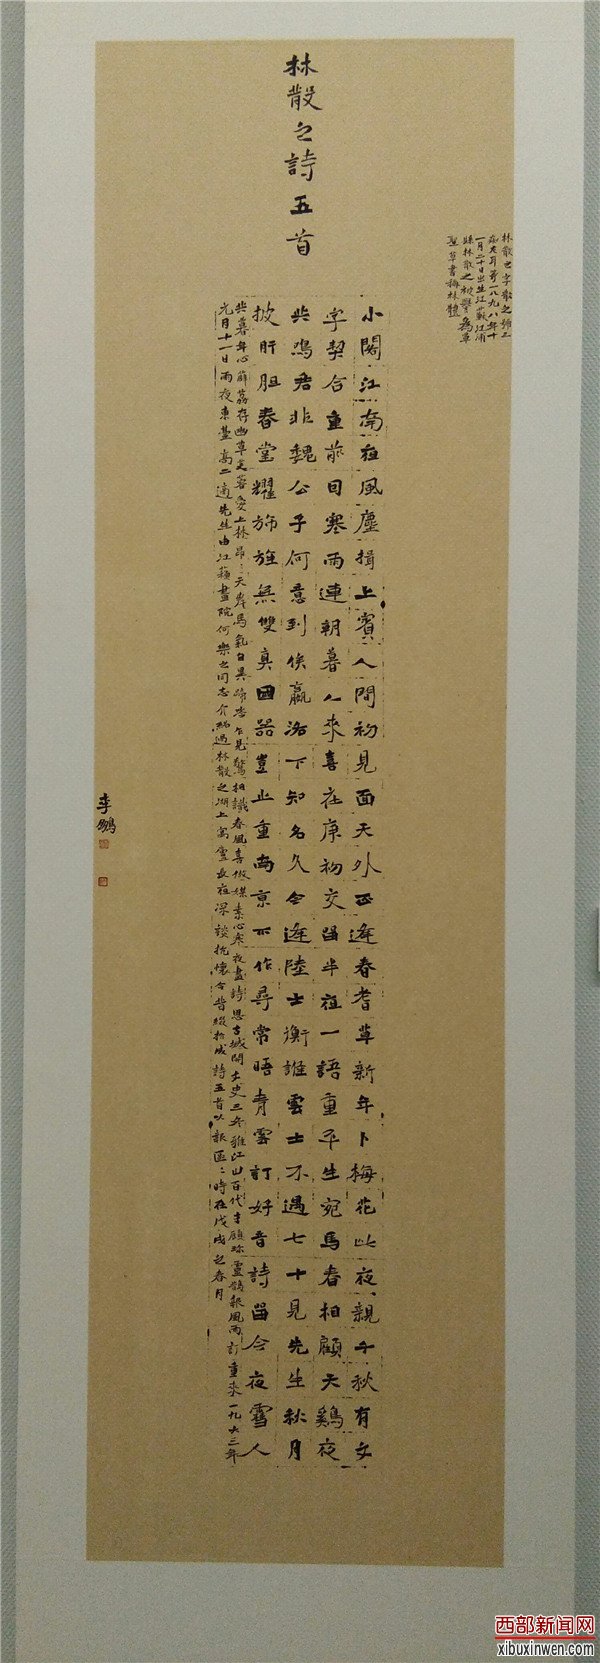 林散之詩五首
林散之字散之號三
痴左耳等一八九八年十
一月二十日出生江蘇江浦
縣林散之被譽為草
聖草書稱林體
小閣江南夜風塵揖上賓人間初見面天外正逢春耆草新年卜梅花此夜親千秋有文
字契合重前回寒雨連朝暮人來喜在庚初交留半夜一語重平生宛馬春相顧天鷄夜
共鳴君非魏公子何意到侯嬴洛下知名久今逢陸士衡誰雲士不遇七十見先生秋月
披肝胆春堂耀旆旌無雙真國器豈止重南京不作尋常晤青雲訂好音詩留今夜雪人
共暮年心薜荔存幽草芝蓉愛上林昂〻天馬氣自異乍見驚相識春風喜做媒素心寒夜盡詩思古城開土史三冬雅江山百代才願珍靈鵲報風雨訂重來一九六三年
元月十一日雨夜東臺高二適先生由江蘇畫院何樂之同志介紹過林散之湖上寓廬長夜深談抗懷今昔綴拾成詩五首以報區〻時在戊戌之春月
李鵬
西部新闻网
xibuxinwen.com